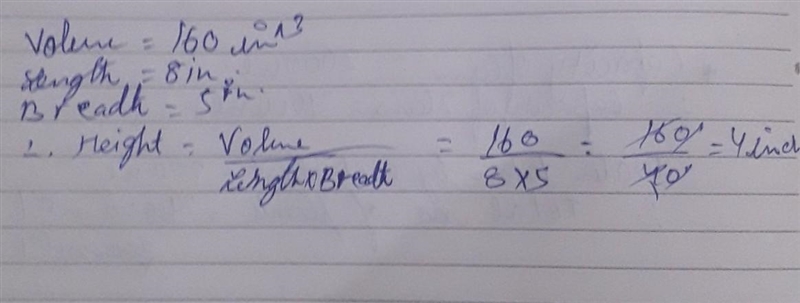 Volume = 160 in^3
Length = 8 in.
Breadh = 5 in.
∴ Height = Volume / Length x Breadh = 160 / 8 x 5 = 160 / 40 = 4 inch